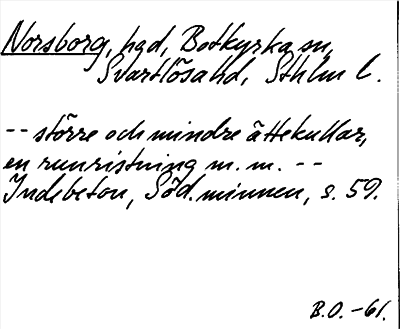 Norsborg, hgd, Botkyrka sn,
Svartlösa hd, Sthlm l.
-- större och mindre ättekullar,
en runristning m.m. --
Indebetou, Söd. minnen, s. 59.
B.O. -61.